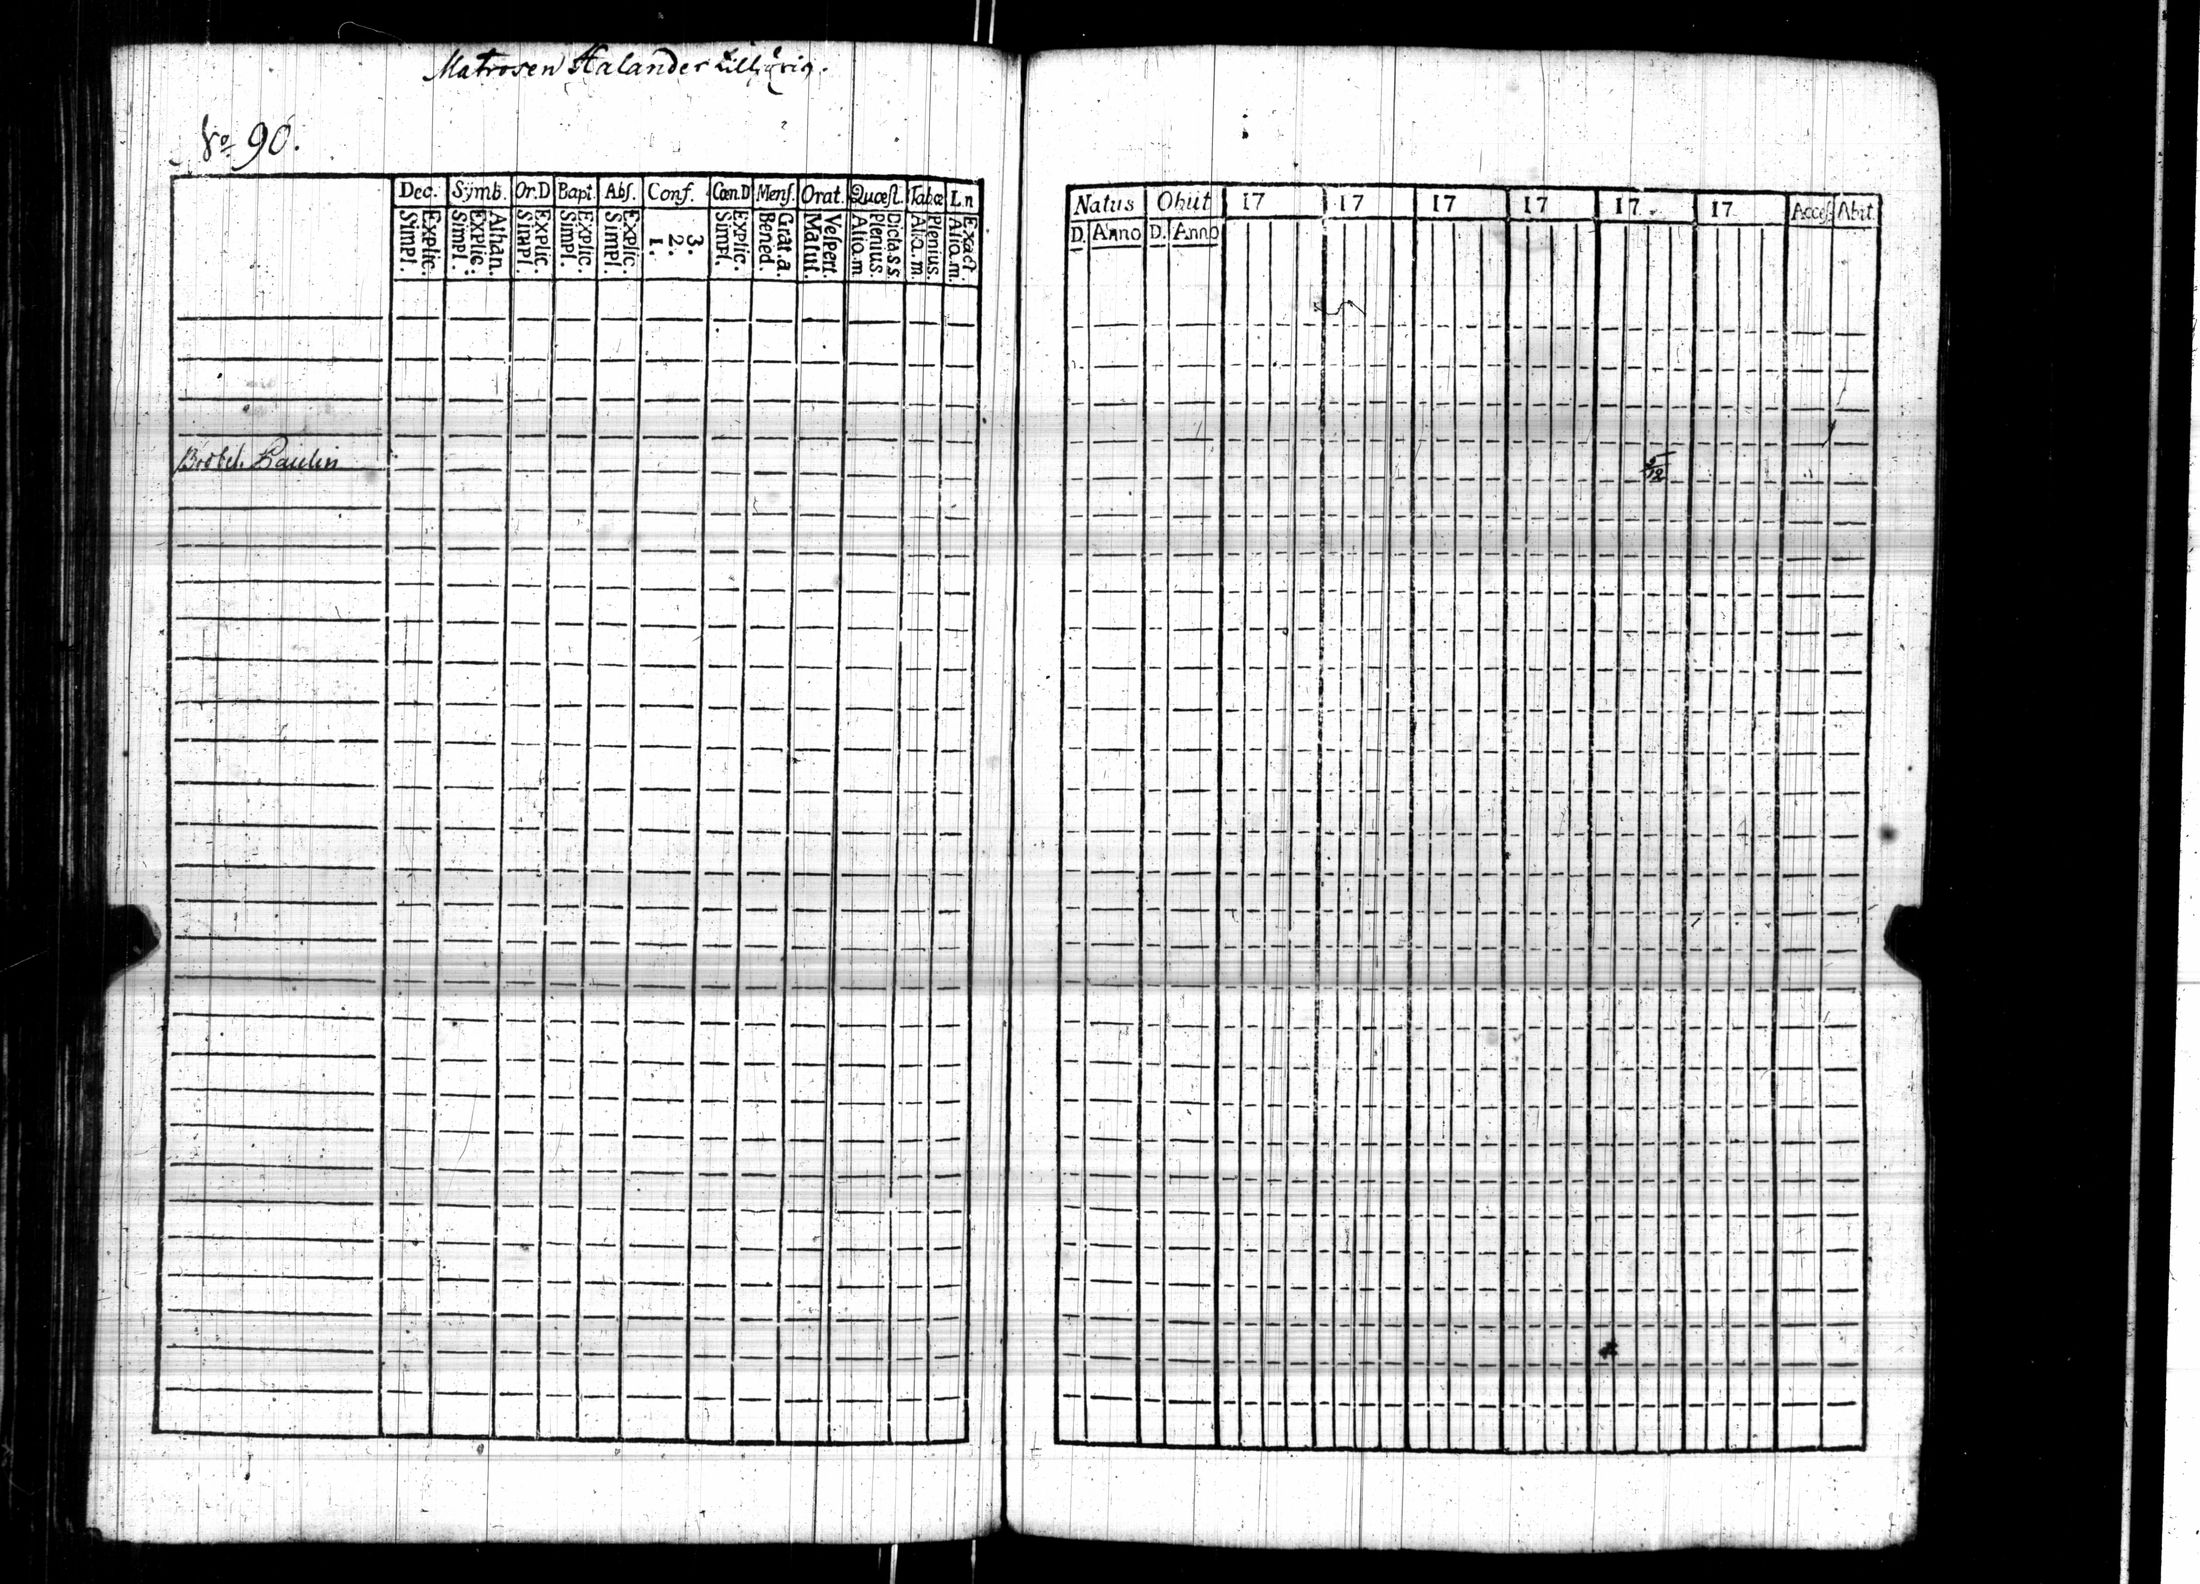 Matrosen Halander
No 90.
Dec. Symb. Or.D Bapt. Abs. Conf. Cœn.D Mens. Orat. Quæst. Tabæ L.n
Explic. Simpl. Athan. Explic. Simpl. Explic. Simpl. Explic. Simpl. Explic. Simpl. 3. 2. 1. Explic. Simpl. Grat.a. Bened. Vespert. Matut. Dicta.s.s. Plenius. Alio.m Plenius. Alia.m. Exact. Alio.m.
Paulin
Natus Obiit 17 17 17 17 17 17 Acces. Abit.
D. Anno D. Anno
5/12